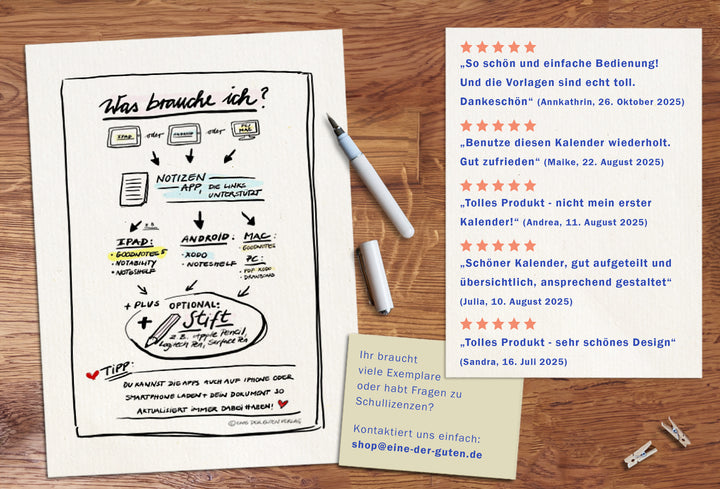 Was brauche ich?
IPAD oder ANDROID oder PC MAC
NOTIZEN
APP, DIE LINKS
UNTERSTÜTZT
z.B.
IPAD:
• GOODNOTES 5
• NOTABILITY
• NOTESHELF
ANDROID:
• XODO
• NOTESHELF
MAC:
• GOODNOTES
PC:
• PDF XODO
• DRAWBOARD
+ PLUS OPTIONAL:
+ Stift
z.B. Apple Pencil,
Logitech Pen, Surface Pen
TIPP:
DU KANNST DIE APPS AUCH AUF IPHONE ODER
SMARTPHONE LADEN + DEIN DOKUMENT SO
AKTUALISIERT IMMER DABEI HABEN!
© EINE DER GUTEN VERLAG
„So schön und einfache Bedienung!
Und die Vorlagen sind echt toll.
Dankeschön“ (Annkathrin, 26. Oktober 2025)
„Benutze diesen Kalender wiederholt.
Gut zufrieden“ (Maike, 22. August 2025)
„Tolles Produkt - nicht mein erster
Kalender!“ (Andrea, 11. August 2025)
„Schöner Kalender, gut aufgeteilt und
übersichtlich, ansprechend gestaltet“
(Julia, 10. August 2025)
„Tolles Produkt - sehr schönes Design“
(Sandra, 16. Juli 2025)
Ihr braucht
viele Exemplare
oder habt Fragen zu
Schullizenzen?
Kontaktiert uns einfach:
shop@eine-der-guten.de